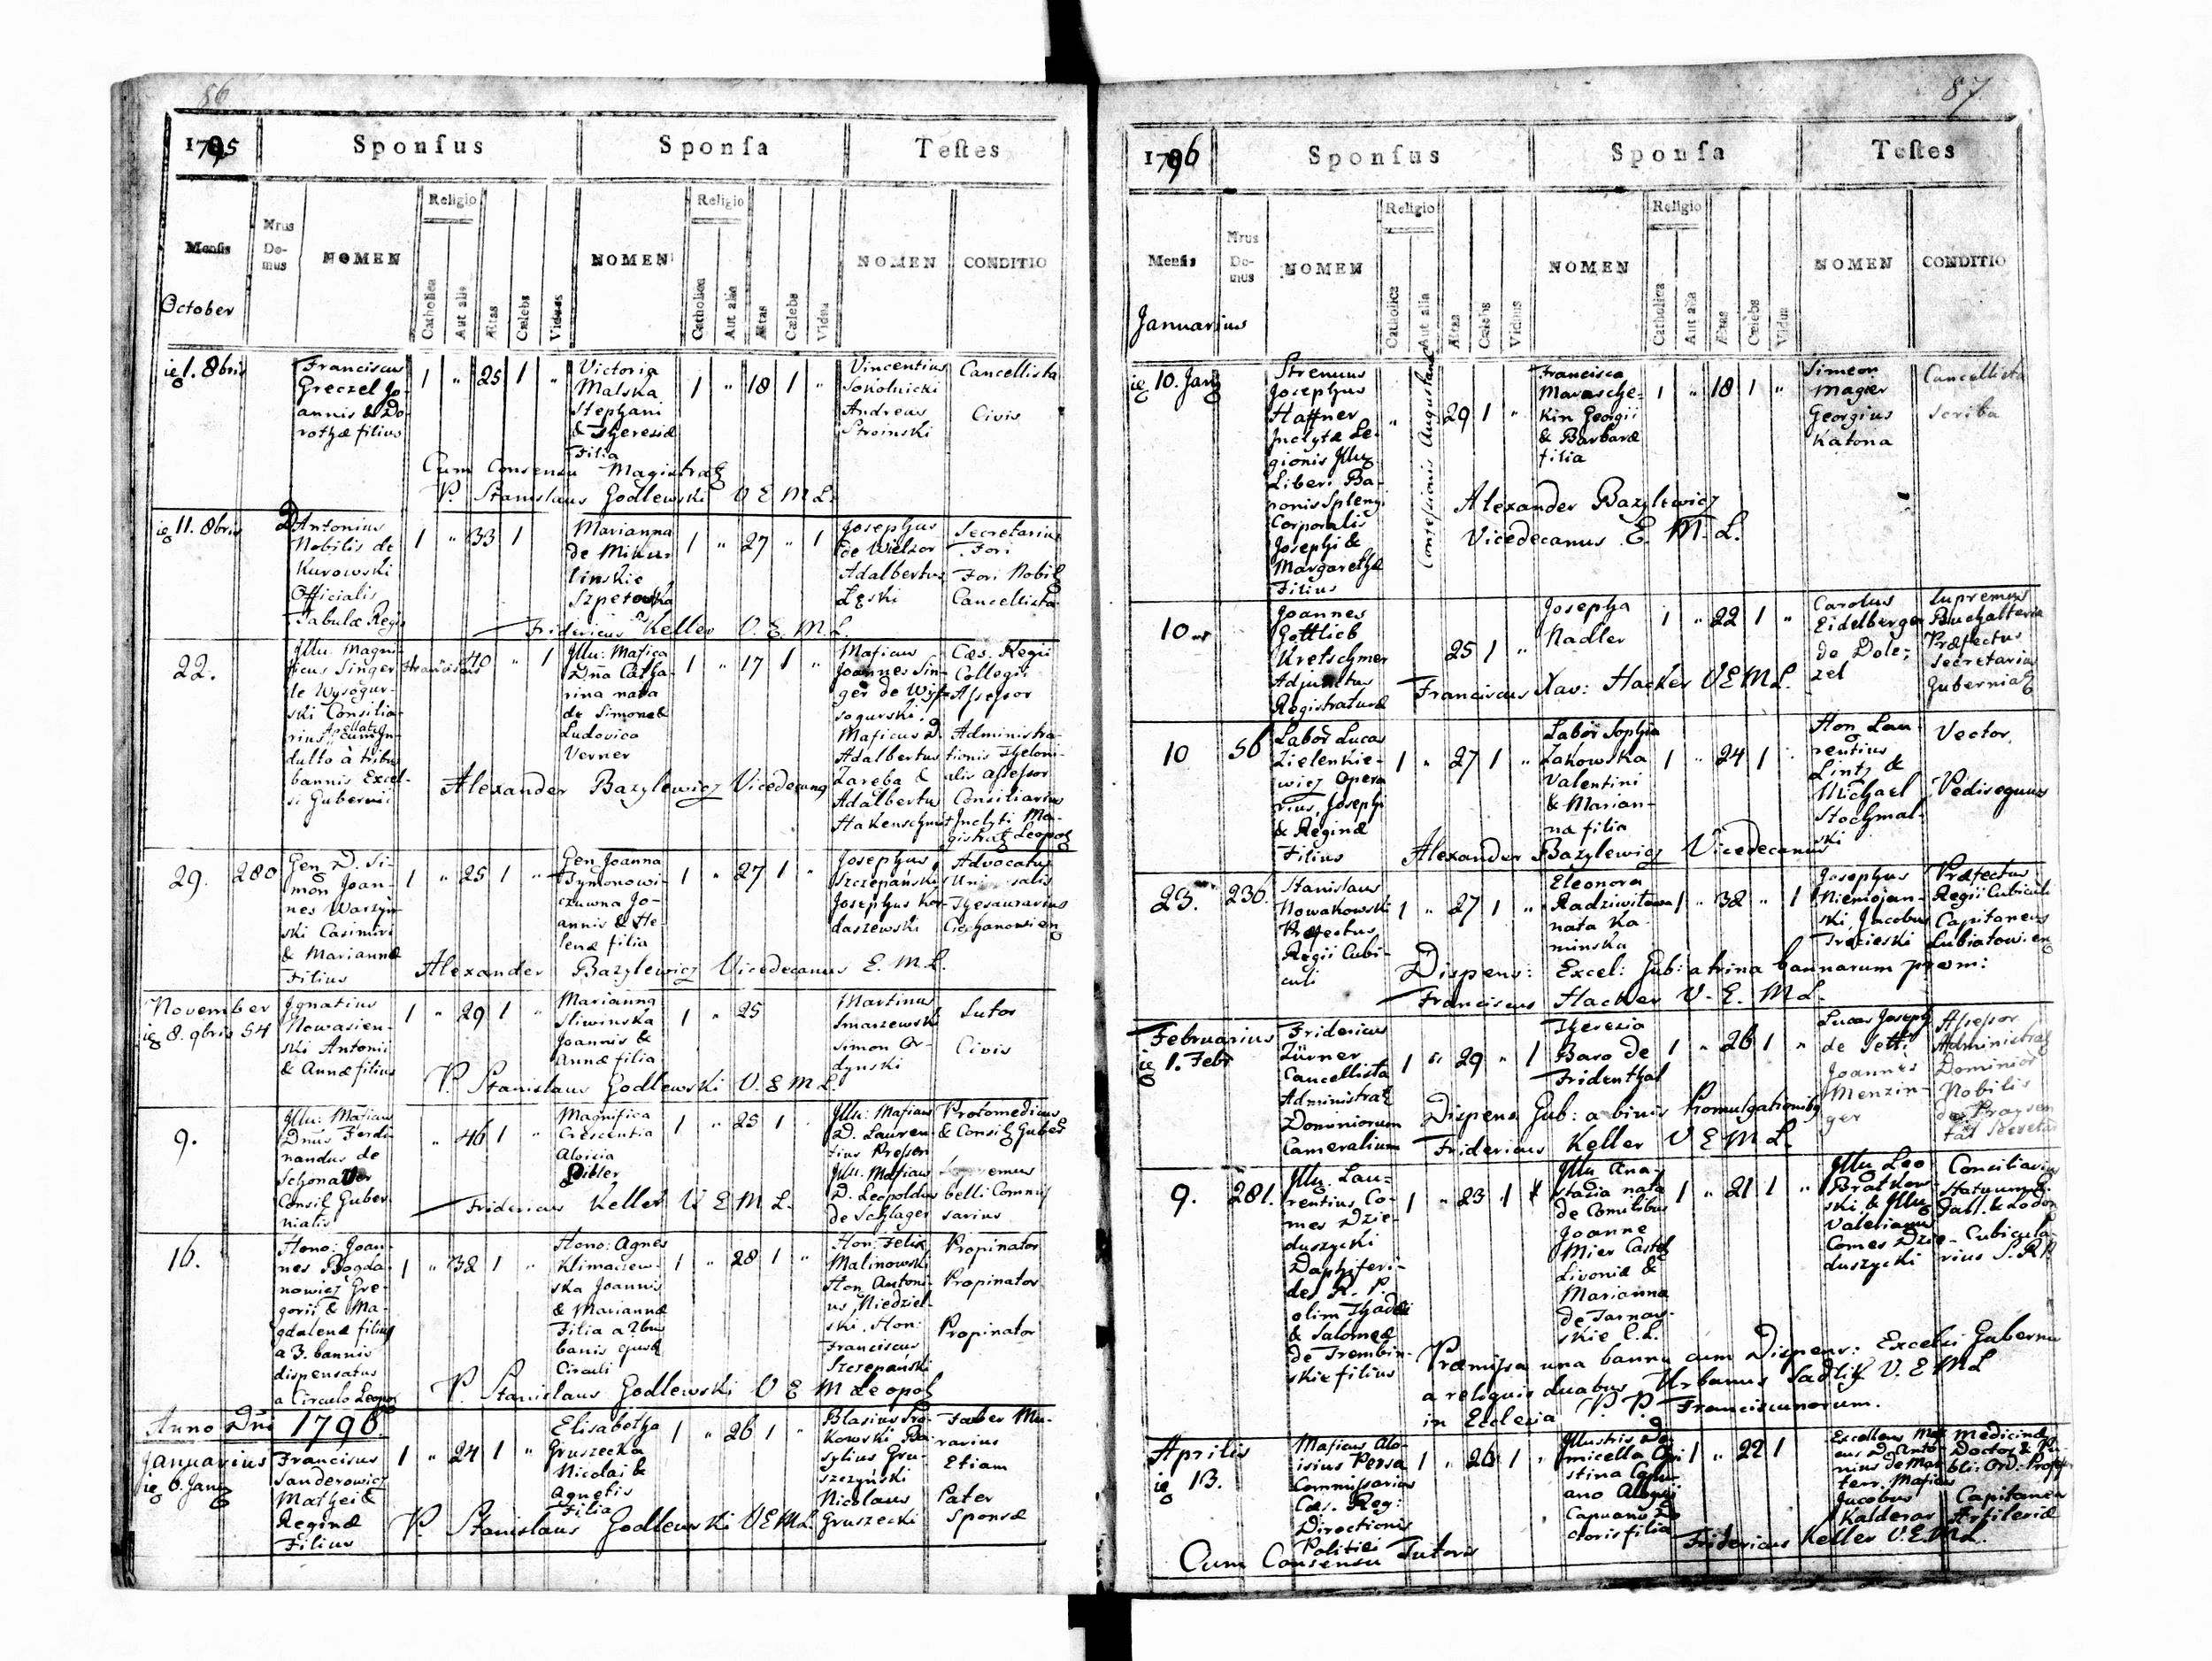 86
1795
Sponsus
Sponsa
Testes
Mensis
Nrus Do-mus
NOMEN
Religio
Catholica
Aut alia
Ætas
Cœlebs
Viduus
NOMEN
Religio
Catholica
Aut alia
Ætas
Cœlebs
Vidua
NOMEN
CONDITIO
October
1. 8bris
Franciscus
Greczel Jo-
annis & Do-
rothæ filius
1 " 25 1 "
Victoria
Malska
Stephani
& Theresiæ
Filia
1 " 18 1 "
Vincentius
Sokolnicki
Andreas
Stroinski
Cancellista
Civis
Cum Consensu Magistratus
P. Stanislaus Godlewski V E M L.
11. 8bris
D Antonius
Nobilis de
Kurowski
Officialis
Tabulæ Regiæ
1 " 33 1
Marianna
de Mikur
linskie
Szpetowska
1 " 27 " 1
Josephus
de Wielzor
Adalbertus
Łęski
Secretarius
Fori
Fori Nobil
Cancellista
Fridericus Keller V. E. M. L.
22.
Illu: Magni-
ficus Singer
de Wysogur-
ski Consilia-
rius Appellatus cum In-
dulto à tribus
bannis Excel-
si Gubernii
Franciscus
40 " 1
Illu: Mafica
Dña Catha-
rina nata
de Simone &
Ludovica
Verner
1 " 17 1 "
Maficus
Joannes Sin-
ger de Wys-
sogurski
Maficus D.
Adalbertus
Zareba &
Adalbertus
Hakenschmit
Cæs. Regii
Collogii
Assessor
Administra-
tionis Theloni-
alis assessor
Consiliarius
Inclyti Ma-
gistrat Leopol
Alexander Bazylewicz Vicedecanus
29.
280
Gen D. Si-
mon Joan-
nes Warzyn-
ski Casimiri
& Mariannæ
Filius
1 " 25 1 "
Gen Joanna
Tymonowi-
czuwna Jo-
annis & He-
lenæ filia
1 " 27 1 "
Josephus
Szczepański
Josephus Kor-
daszewski
Advocatus
Thesaurarius
Ciechanowien
Alexander Bazylewicz Vicedecanus E. M. L.
November
8. 9bris 54
Ignatius
Nowasien-
ski Antonii
& Annæ filius
1 " 29 1 "
Marianna
Sliwinska
Joannis &
Annæ filia
1 " 25
Martinus
Smarzewski
Simon Or-
dynski
Sutor
Civis
P. Stanislaus Godlewski V. E M L.
9.
Illu: Maficus
Dnus Ferdi-
nandus de
Schonauer
Consil Guber-
nialis
" 46 1 "
Magnifica
Crescentia
Aloisia
Bibler
1 " 25 1
Illu: Maficus
D. Lauren-
tius Presser
Illu. Maficus
D. Leopoldus
de Schlager
Protomedicus
& Consil Guber
Supremus
belli Commis
sarius
Fridericus Keller V E M L.
16.
Hono: Joan-
nes Bogda-
nowicz Gre-
gorii & Ma-
gdalenæ filius
a 3. bannis
dispensatus
a Circulo Leopol
1 " 32 1 "
Hono: Agnes
Klimaszew-
ska Joannis
& Mariannæ
Filia a 2bus
banis ejusd
Circuli
1 " 28 1 "
Hon: Felix
Malinowski
Hon Antoni-
us Niedziel-
ski. Hon:
Franciscus
Szczepański
Propinator
Propinator
Propinator
P. Stanislaus Godlewski V E M Leopol
Anno Dni 1796.
Januarius
6. Jan
Franciscus
Sanderowicz
Mathei &
Reginæ
Filius
1 " 24 1 "
Elisabetha
Gruszecka
Nicolai &
Agnetis
Filia
1 " 26 1 "
Blasius Sro-
kowski Ba-
sylius Gru-
szczyński
Nicolaus
Gruszecki
Faber Mu-
rarius
Etiam
Pater
Sponsæ
P. Stanislaus Godlewski V E M L.
87
1796
Sponsus
Sponsa
Testes
Mensis
Nrus Do-mus
NOMEN
Religio
Catholica
Aut alia
Ætas
Cœlebs
Viduus
NOMEN
Religio
Catholica
Aut alia
Ætas
Cœlebs
Vidua
NOMEN
CONDITIO
Januarius
10. Jan
Strenuus
Josephus
Haffner
Inclytæ Le-
gionis Illu
Liberi Ba-
ronis Splenyi
Corporalis
Josephi &
Margarethæ
Filius
"
Confessionis Augustanæ
29 1 "
Francisca
Marasche-
kin Georgii
& Barbaræ
filia
1 " 18 1 "
Simeon
Magier
Georgius
Katona
Cancellista
Scriba
Alexander Bazylewicz
Vicedecanus E. M. L.
10
Joannes
Gottlieb
Kretschmer
Adjunctus
Registraturæ
25 1 "
Josepha
Nadler
1 " 22 1 "
Carolus
Eidelberger
de Dole-
zel
Supremus
Buchalteria
Præfectus
Secretarius
Gubernial
Franciscus Xav: Hacker V E M L.
10
56
Labor Lucas
Zielenkie-
wicz Opera
rius, Josephi
& Reginæ
Filius
1 " 27 1 "
Labor Sophia
Zakowska
Valentini
& Marian-
næ filia
1 " 24 1
Hon Lau-
rentius
Lintz &
Michael
Stochmal-
ski
Vector
Pedisequus
Alexander Bazylewicz Vicedecanus
23.
236.
Stanislaus
Nowakowski
Præfectus
Regii Cubi-
culi
1 " 27 1 "
Eleonora
Radziwiłowa
nata Ka-
minska
1 " 32 " 1
Josephus
Niemojan-
ski, Jacobus
Trzcieski
Præfectus
Regii Cubiculi
Capitaneus
Lubiatowien
Dispens: Excel: Gub: a trina bannarum præm:
Franciscus Hacker V. E. M L.
Februarius
1. Febr
Fridericus
Zürner
Cancellista
Administrat
Dominiorum
Cameralium
1 " 29 " 1
Therezia
Baro de
Fridenthal
1 " 26 1 "
Lucas Joseph
de Setti
Joannes
Menzin-
ger
Assessor
Administrat
Dominior
Nobilis
Dispens Gub: a binis Promulgationibus
Fridericus Keller V E M L.
9.
281.
Illu. Lau-
rentius Co-
mes Dzie-
duszycki
Daphiferi-
des R. P.
olim Thadæi
& Salomeæ
de Trembin-
skie filius
1 " 23 1
Illu Ana-
stasia nata
de Comitibus
Joanne
Mier Castel
Livoniæ &
Marianna
de Tarnow-
skie C. L.
1 " 21 1 "
Illu Leo
Bratkow-
ski & Illu
Valerianus
Comes Dzie-
duszycki
Consiliarius
Statuum
Gall. & Lodom
Cubicula-
rius S. R. P.
Præmissa una banna cum Dispens: Excelsi Gubernii
a reliquis duabus Urbanus Sadlik V. E M L
in Ecclesia P. P. Franciscanorum.
Aprilis
13.
Maficus Alo-
isius Persa
Commissarius
Cæs. Reg:
Directionis
Politici
1 " 26 1 "
Illustris Do-
micella Chri-
stina
ano Aloysii
Capuano Do
ctoris filia
1 " 22 1
Excellens Mafi
cus D. Anto-
nius de Mar-
terr. Maficus
Jacobus
Kalderar
Medicinæ
Doctor & Pu-
bli: Ord: Profes
Capitaneus
Artileriæ
Cum Consensu Tutoris
Fridericus Keller V. E. M L.